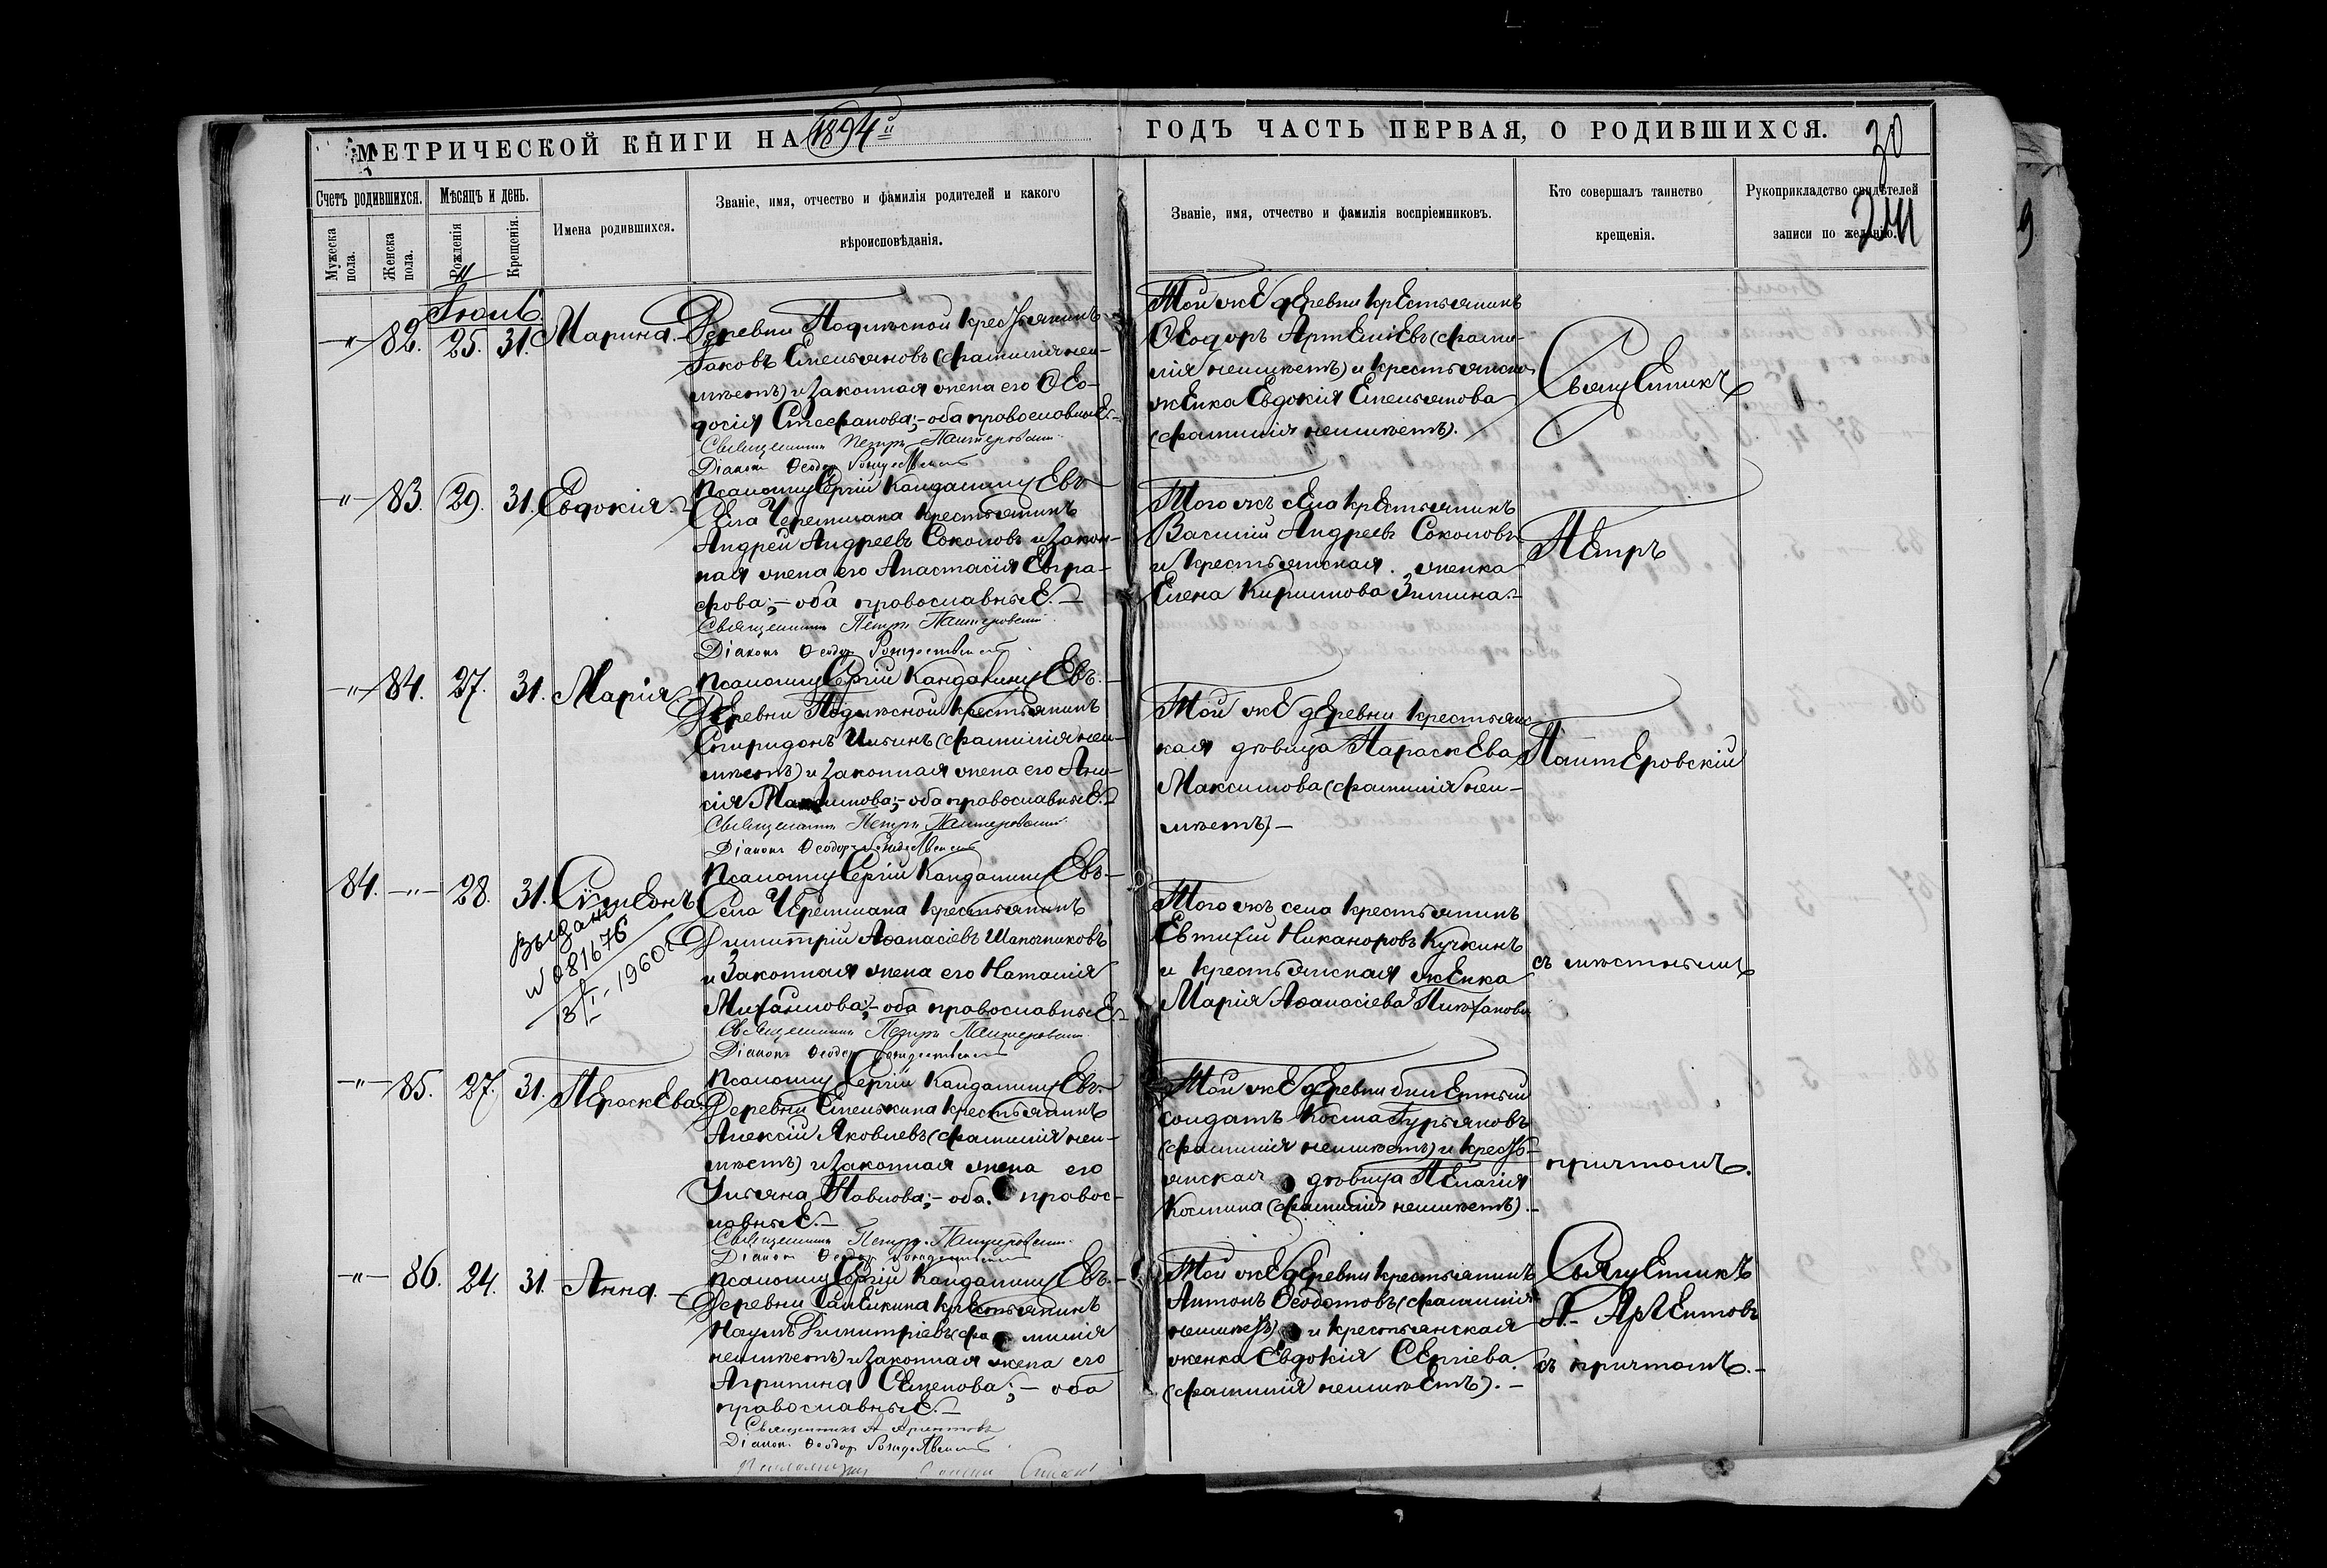 МЕТРИЧЕСКОЙ КНИГИ НА 1894й ГОДЪ ЧАСТЬ ПЕРВАЯ, О РОДИВШИХСЯ.
30
Счетъ родившихся.
Мужеска пола.
Женска пола.
Мѣсяцъ и день.
Рожденія
Крещенія.
Имена родившихся.
Званіе, имя, отчество и фамилія родителей и какого
вѣроисповѣданія.
Званіе, имя, отчество и фамилія воспріемниковъ.
Кто совершалъ таинство
крещенія.
Рукоприкладство свидѣтелей
записи по желанію.
82. 25. 31. Марина.
Деревни крестьянинъ
Іаковъ Емельяновъ (фамиліи не и-
мѣетъ) и законная жена его Ѳео-
досія Стефанова; - оба православные. -
Священникъ Петръ Пантеровскій
Діаконъ Ѳеодоръ Рождественскій
Псаломщ Сергій
Той же деревни крестьянинъ
Ѳеодоръ Артеміевъ (фами-
лія не имѣетъ) и крестьянская
женка Евдокія Емельянова
(фамиліи не имѣетъ).
Священникъ
-"- 83. 29. 31. Евдокія. -
Села Черемшана крестьянинъ
Андрей Андреевъ Соколовъ и закон-
ная жена его Анастасія Евгра-
фова; - оба православные. -
Священникъ Петръ Пантеровскій
Діаконъ Ѳеодоръ Рождественскій
Псаломщ Сергій
Того жъ села крестьянинъ
Василій Андреевъ Соколовъ
и крестьянская женка
Елена Кирилова Зимина. -
Петръ
-"- 84. 27. 31. Марія.
Деревни крестьянинъ
Спиридонъ Ильинъ (фамиліи не и-
мѣетъ) и законная жена его Ани-
сія Максимова; - оба православные. -
Священникъ Петръ Пантеровскій
Діаконъ Ѳеодоръ Рождественскій
Псаломщ Сергій
Той же деревни крестьянс-
кая дѣвица Параскева
Максимова (фамиліи не и-
мѣетъ) -
Пантеровскій
84. -"- 28. 31. Сѵмеонъ
Выдано
№ 081676
1960
Села Черемшана крестьянинъ
Димитрій Аѳанасіевъ Шапочниковъ
и законная жена его Наталія
Михаилова; - оба православные. -
Священникъ Петръ Пантеровскій
Діаконъ Ѳеодоръ Рождественскій
Псаломщ Сергій
Того жъ села крестьянинъ
Евтихій Никаноровъ Кучкинъ
и крестьянская женка
Марія Аѳанасіева
съ мѣстнымъ
-"- 85. 27. 31. Параскева.
Деревни Емелькина крестьянинъ
Алексій Яковлевъ (фамиліи не и-
мѣетъ) и законная жена его
Ульяна Павлова; - оба правос-
лавные. -
Священникъ Петръ Пантеровскій
Діаконъ Ѳеодоръ Рождественскій
Псаломщ Сергій
Той же деревни билетный
солдатъ Косма Гурьяновъ
(фамиліи не имѣетъ) и кресть-
янская дѣвица Пелагія
Космина (фамиліи не имѣетъ). -
причтомъ.
-"- 86. 24. 31. Анна. -
Деревни крестьянинъ
Наумъ Димитріевъ (фамиліи
не имѣетъ) и законная жена его
Агрипина Семенова; - оба
православные. -
Священникъ А. Аргентовъ
Діаконъ Ѳеодоръ Рождественскій
Той же деревни крестьянинъ
Антонъ Ѳеодотовъ (фамиліи
не имѣетъ) и крестьянская
женка Евдокія Сергіева
(фамиліи не имѣетъ). -
Священникъ
А. Аргентовъ
съ причтомъ. -